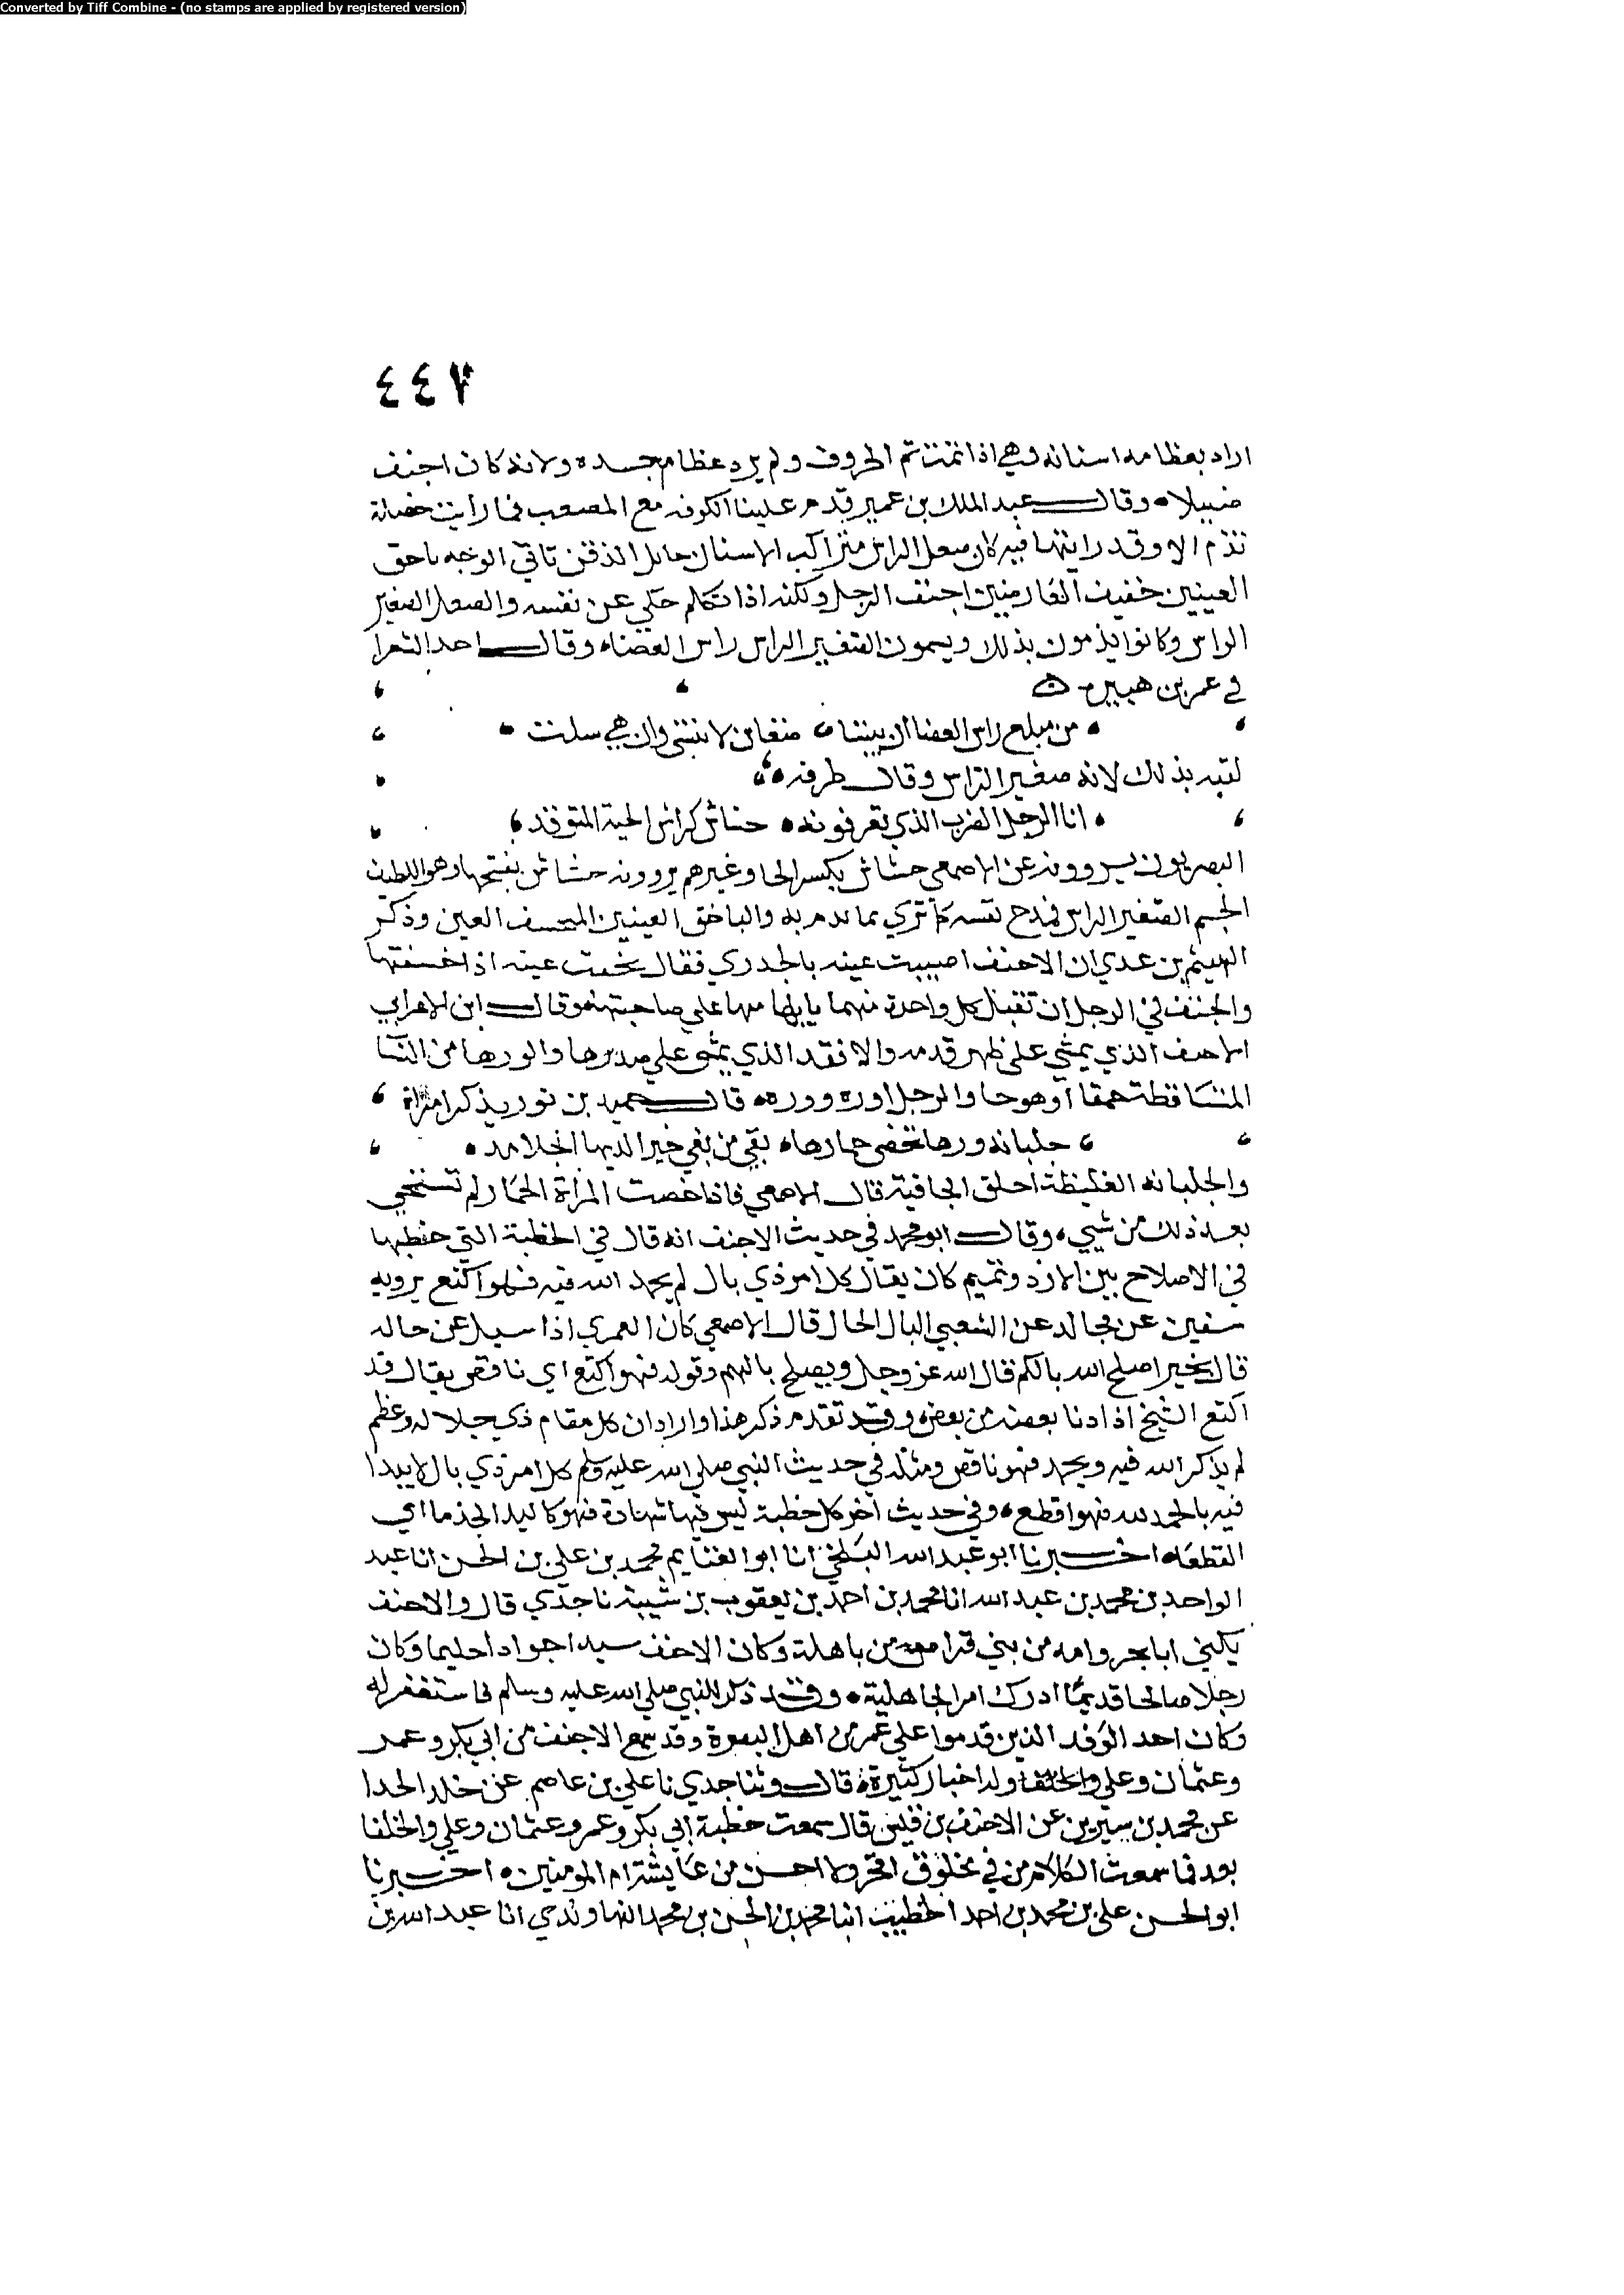 Converted by Tiff Combine - (no stamps are applied by registered version)
٤٤٧
اراد بعظامه اسنانه وهي اذا تمت تم الحروف ولم يرد عظام جسده ولانه كان احنف
ضييلا وقال عبد الملك بن عمير قدم علينا الكوفه مع المصعب فما رأيت خصلة
تذم الا وقد رايتها فيه كان صعل الراس متراكب الاسنان مايل الذقن ناتي الوجه باحق
العينين خفيف العارضين احنف الرجل ولكنه اذا تكلم جلي عن نفسه والصعل الصغير
الراس وكانوا يذمون بذلك ويسمون الصغير الراس راس العصا وقال احد الشعرا
في عمر بن هبيره
من مبلغ راس العصا ان بيننا ضغاين لا تنسي وان هي سلت
لقبه بذلك لانه صغير الراس وقال طرفه
انا الرجل الضرب الذي تعرفونه خشاش كراس الحية المتوقد
البصريون يروونه عن الاصمعي خشاش بكسر الخا وغيرهم يروونه خشاش بفتحها وهو اللطيف
الجسم الصغير الراس فمدح نفسه كما تري بما يذم به والباخق العينين المنخسف العين وذكر
الهيثم بن عدي ان الاحنف اصيبت عينه بالجدري فقال بخقت عينه اذا خسفتها
والحنف في الرجل ان تقبل كل واحدة منهما بابهامها علي صاحبتها وقال ابن الاعرابي
الاحنف الذي يمشي علي ظهر قدمه والاقفد الذي يمشي علي صدرها والورها من النسا
المتساقطة حمقا او هوجا والرجل اوره وورهه قال حميد بن ثور يذكر امراة
جلبانه ورها تخصي حمارها بفي من بغي خيرا لديها الجلامد
والجلبانه الغليظة الخلق الجافية قال الاصمعي فاذا خصت المرأة الحمار لم تستحي
بعد ذلك من شيي وقال ابو محمد في حديث الاحنف انه قال في الخطبة التي خطبها
في الاصلاح بين الازد وتميم كان يقال كل امر ذي بال لم يحمد الله فيه فهو اكتع يرويه
سفين عن مجالد عن الشعبي البال الحال قال الاصمعي كان العمري اذا سيل عن حاله
قال بخير اصلح الله بالكم قال الله عز وجل ويصلح بالهم وقوله فهو اكتع اي ناقص يقال قد
اكتع الشيخ اذا دنا بعضه من بعض وقد تقدم ذكر هذا واراد ان كل مقام ذي جلاله وعظم
لم يذكر الله فيه ويحمد فهو ناقص ومثله في حديث النبي صلي الله عليه وسلم كل امر ذي بال لا يبدا
فيه بالحمد لله فهو اقطع وفي حديث آخر كل خطبة ليس فيها شهادة فهو كاليد الجذما اي
القطعا اخبرنا ابو عبد الله البلخي انا ابو الغنايم محمد بن علي بن الحسن انا عبد
الواحد بن محمد بن عبد الله انا محمد بن احمد بن يعقوب بن شيبة نا جدي قال والاحنف
يكني ابا بحر وامه من بني من باهلة وكان الاحنف سيدا جوادا حليما وكان
رجلا صالحا قديما ادرك امر الجاهلية وقد ذكر للنبي صلي الله عليه وسلم فاستغفر له
وكان احد الوفد الذين قدموا علي عمر من اهل البصرة وقد سمع الاحنف من ابي بكر وعمر
وعثمان وعلي والخلفا وله اخبار كثيرة قال وثنا جدي نا علي بن عاصم عن خلد الحدا
عن محمد بن سيرين عن الاحنف بن قيس قال سمعت خطبة ابي بكر وعمر وعثمان وعلي والخلفا
بعد فما سمعت الكلام من في مخلوق افخر ولا احسن من عايشة ام المومنين اخبرنا
ابو الحسن علي بن محمد بن احمد الخطيب انبا محمد بن الحسن بن محمد النهاوندي انا عبد الله بن